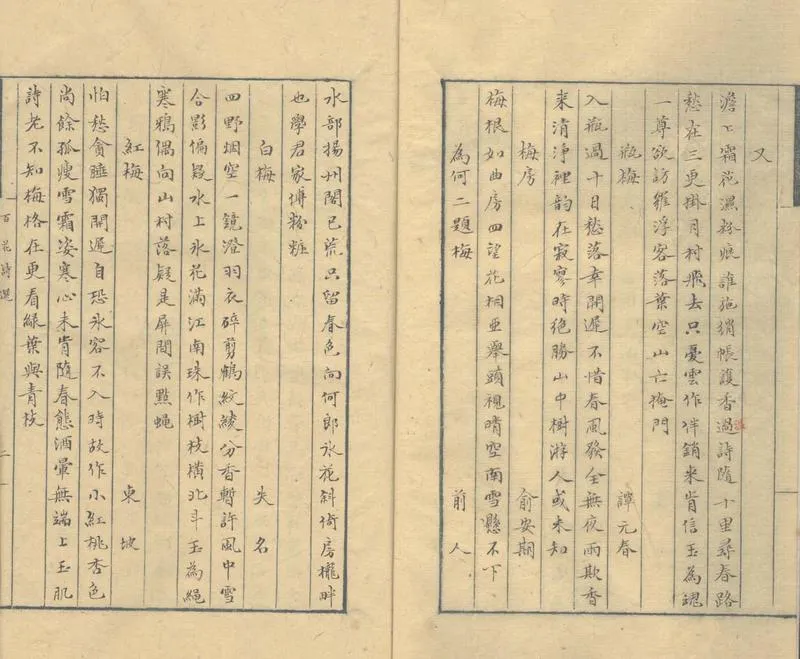 又
澹〻霜花濕粉痕誰施綃帳護香過詩隨十里尋春路
愁在三更掛月村飛去只憂雲作伴銷来肯信玉為魂
一尊欲訪羅浮客落葉空山正掩門
瓶梅 譚元春
入瓶過十日愁落幸開遲不惜春風發全無夜雨欺香
来清淨裡韵在寂寥時絶勝山中樹游人或未知
梅房 俞安期
梅根如曲房四望花相亞舉頭晴空南雪懸不下
為何二題梅 前人
水部揚州閣已荒只留春色向何郎氷花斜倚房櫳畔
也學君家傅粉粧
白梅 失名
四野烟空一鏡澄羽衣碎剪鶴紋綾分香暫許風中雪
合影偏疑水上氷花滿江南珠作樹枝橫北斗玉為繩
寒鴉偶向山村落疑是屏間誤點蠅
紅梅 東坡
怕愁貪睡獨開遲自恐氷容不入時故作小紅桃杏色
尚餘孤瘦雪霜姿寒心未肯隨春態酒暈無端上玉肌
詩老不知梅格在更看綠葉與青枝
百花詩選 二